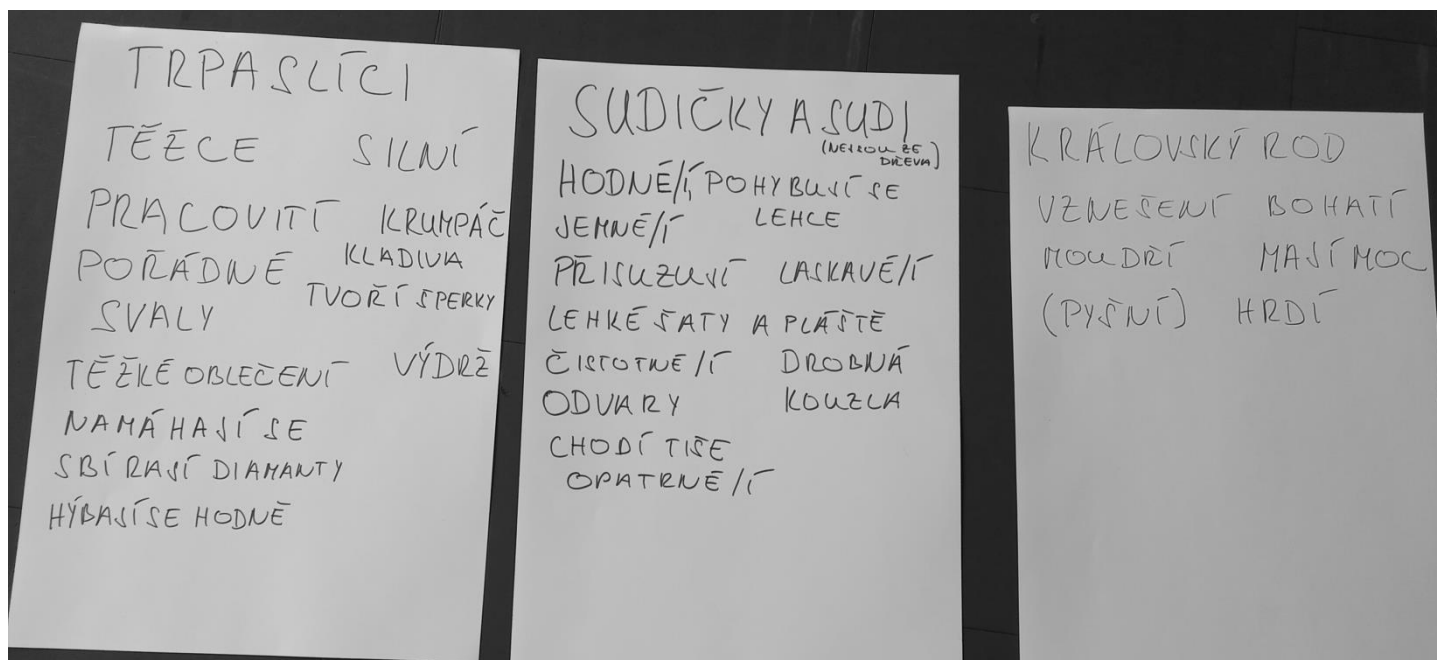 TRPASLÍCI
TĚŽCE SILNÍ
PRACOVITÍ KRUMPÁČ
POŘÁDNĚ KLADIVA
SVALY TVOŘÍ ŠPERKY
TĚŽKÉ OBLEČENÍ VÝDRŽ
NAMÁHAJÍ SE
SBÍRAJÍ DIAMANTY
HÝBAJÍ SE HODNĚ
SUDIČKY A SUDI
(NEJSOU ZE DŘEVA)
HODNÉ/Í POHYBUJÍ SE
JEMNÉ/Í LEHCE
PŘISUZUJÍ LASKAVÉ/Í
LEHKÉ ŠATY A PLÁŠTĚ
ČISTOTNÉ/Í DROBNÁ
ODVARY KOUZLA
CHODÍ TIŠE
OPATRNĚ/Í
KRÁLOVSKÝ ROD
VZNEŠENÍ BOHATÍ
MOUDŘÍ MAJÍ MOC
(PYŠNÍ) HRDÍ